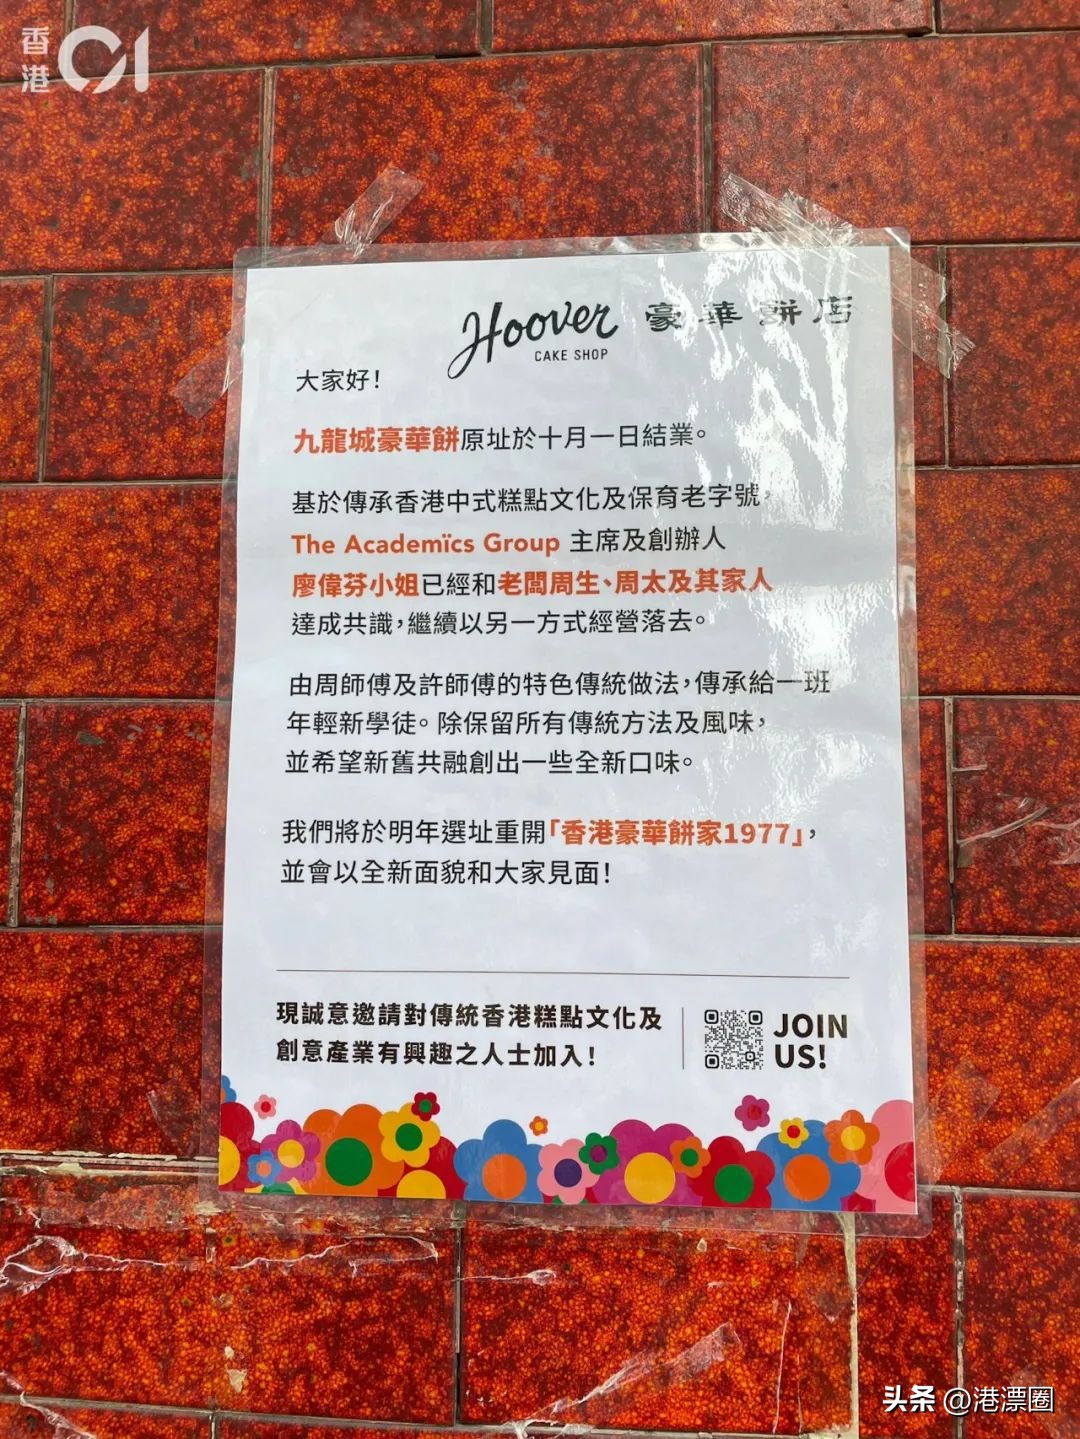 香港01
Hoover 豪華餅店
CAKE SHOP
大家好！
九龍城豪華餅原址於十月一日結業。
基於傳承香港中式糕點文化及保育老字號，
The Academïcs Group 主席及創辦人
廖偉芬小姐已經和老闆周生、周太及其家人
達成共識，繼續以另一方式經營落去。
由周師傅及許師傅的特色傳統做法，傳承給一班
年輕新學徒。除保留所有傳統方法及風味，
並希望新舊共融創出一些全新口味。
我們將於明年選址重開「香港豪華餅家1977」，
並會以全新面貌和大家見面！
現誠意邀請對傳統香港糕點文化及
創意產業有興趣之人士加入！
JOIN
US!
头条 @港漂圈